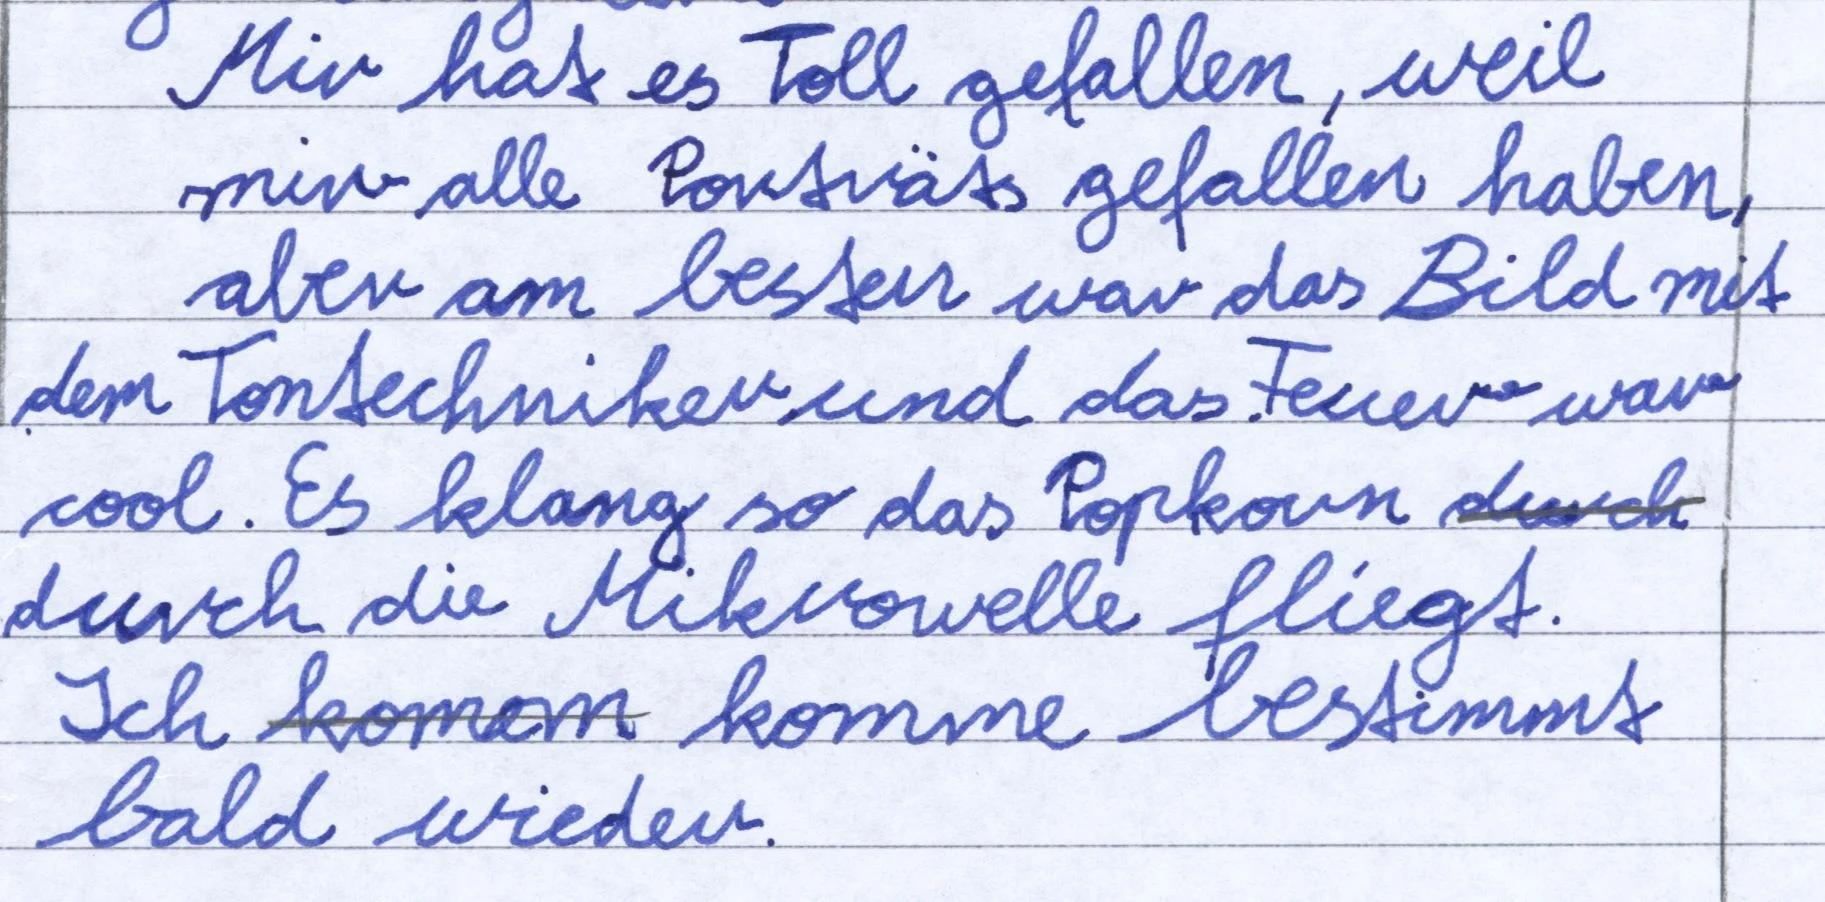 Mir hat es Toll gefallen, weil
mir alle Porträts gefallen haben,
aber am besten war das Bild mit
dem Tontechniker und das Feuer war
cool. Es klang so das Popkorn durch
durch die Mikrowelle fliegt.
Ich komem komme bestimmt
bald wieder.